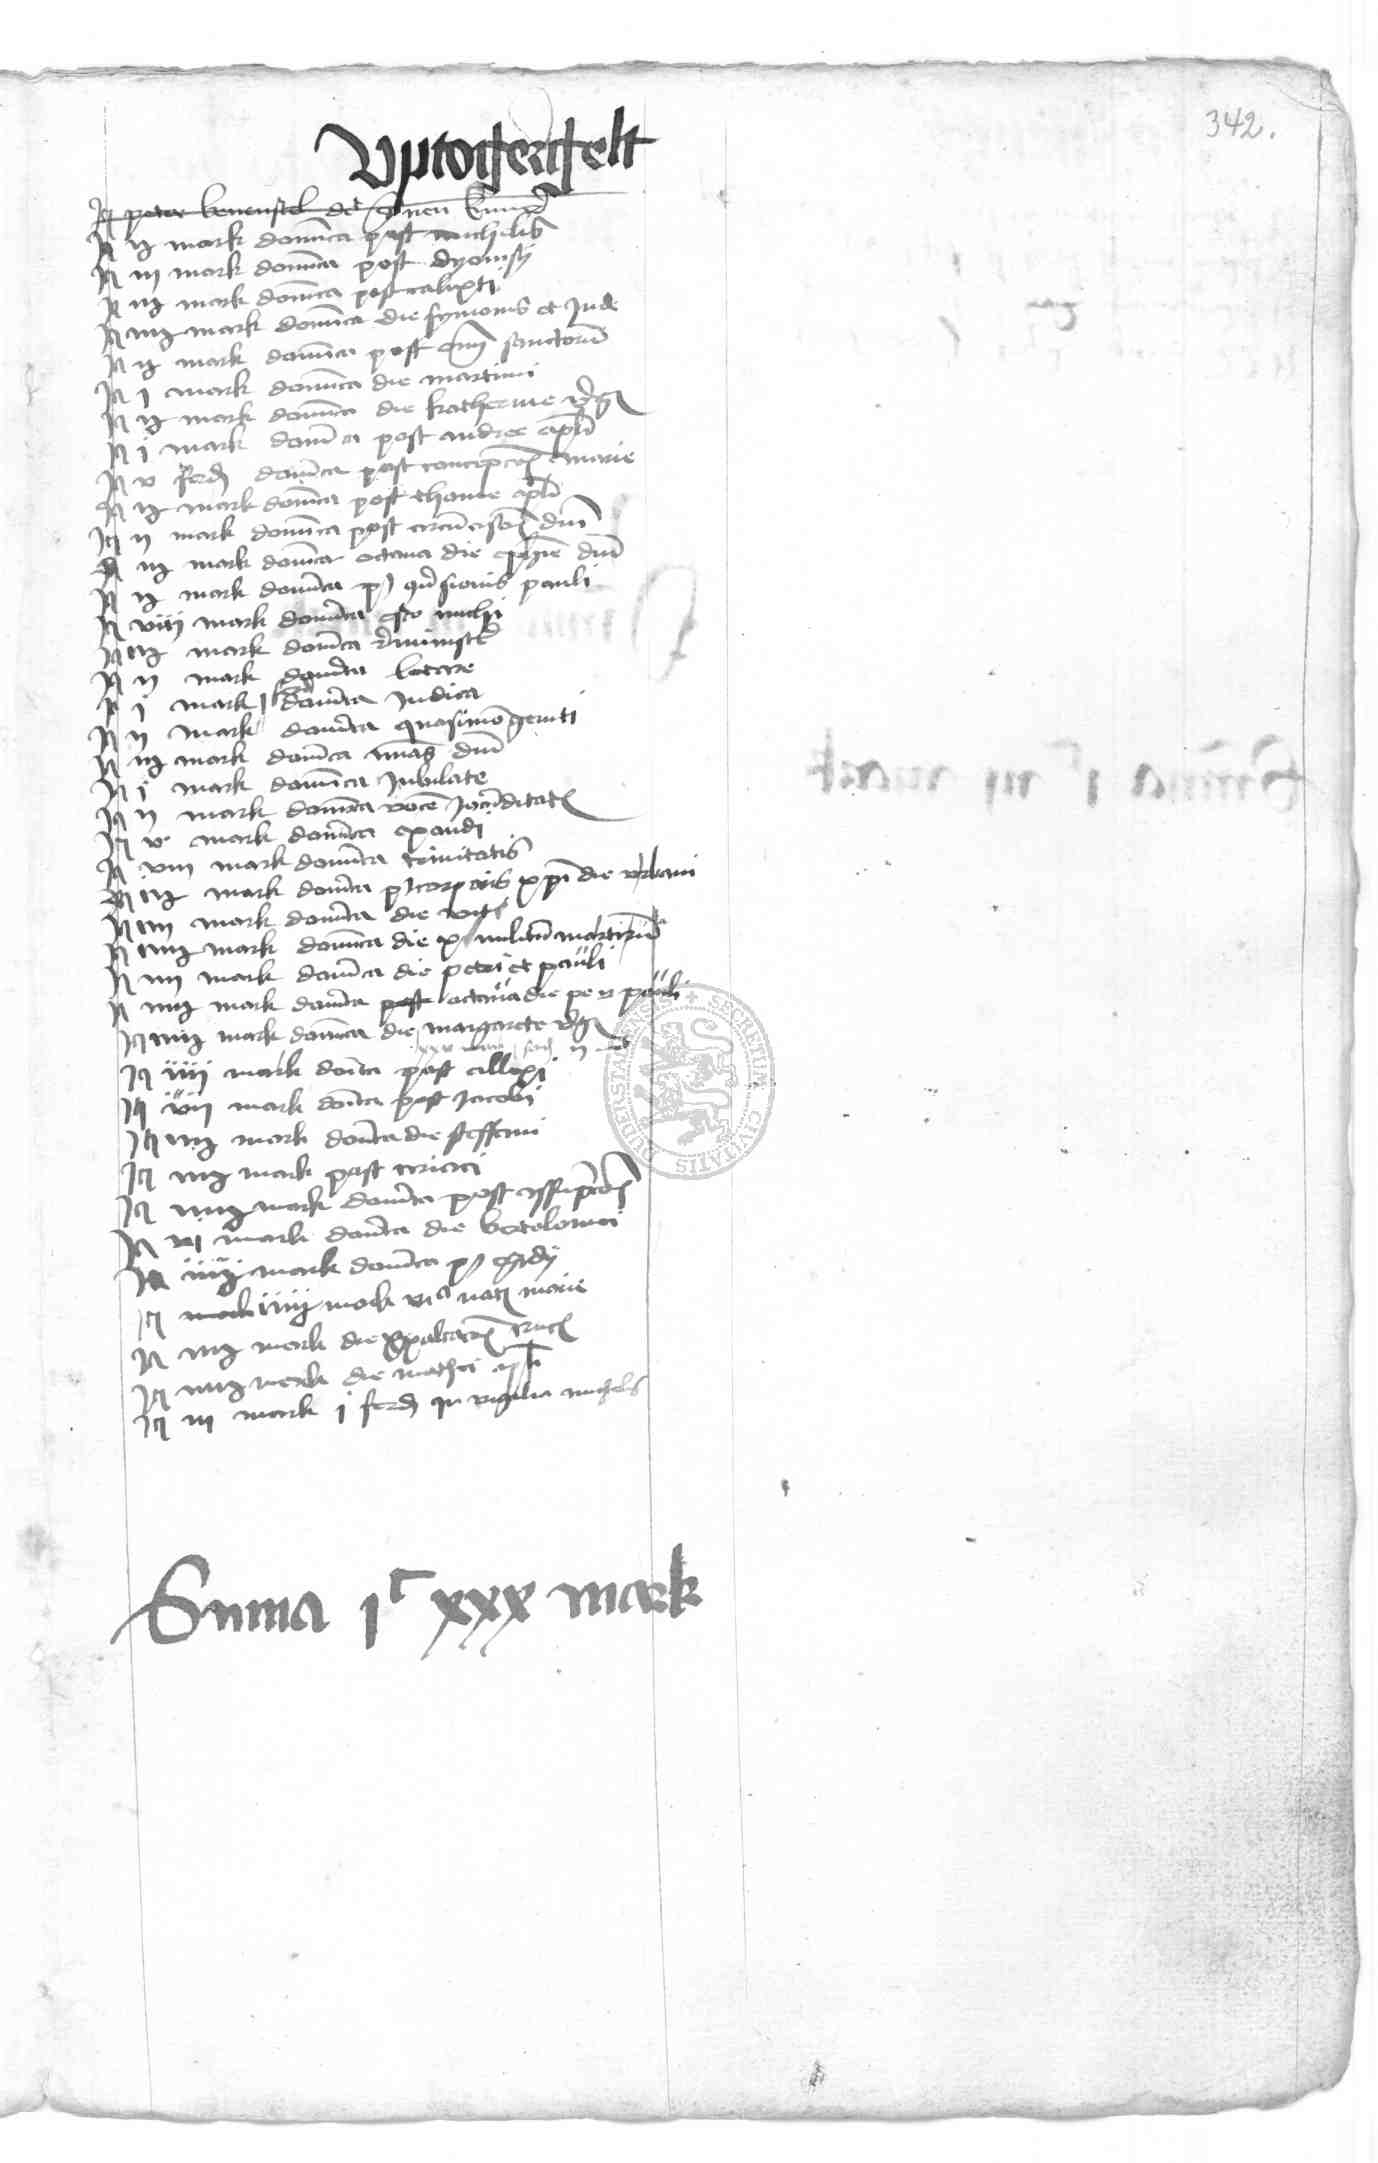 342.
Uptogergelt
It peter
It ij mark dominica post michelis
It iij mark dominica post dyonisij
It iij mark dominica post calixti
It iiij mark dominica die symonis et Jude
It ij mark dominica post omn sanctorum
It j mark dominica die martini
It ij mark dominica die katherine virg
It j mark dominica post andree apli
It v ferd dominica post concepcois marie
It ij mark dominica post thome apli
It ij mark dominica post circumcisois dni
It iij mark dominica octava die epyphie dni
It ij mark dominica p conversionis pauli
It viij mark dominica esto michi
It iij mark dominica reminiscere
It ij mark dominica letare
It j mark dominica Judica
It ij mark dominica quasimogeniti
It iij mark dominica mias dni
It j mark dominica Jubilate
It ij mark dominica vocem Jocunditatis
It v mark dominica exaudi
It viij mark dominica trinitatis
It iij mark dominica p corporis xpi die urbani
It iiij mark dominica die viti
It iiij mark dominica die x milium martirum
It iiij mark dominica die petri et pauli
It iiij mark dominica post octava die pe et pauli
It iiij mark dominica die margarete virg
It iiij mark dominica post allexi
It vij mark dominica post Jacobi
It iij mark dominica die steffani
It iiij mark post ciriaci
It iiij mark dominica post assumpcois
It vj mark dominica die bertolomei
It iiij mark dominica p egidij
It mark iiij mark via nat marie
It iiij mark die Exaltacois crucis
It iiij mark die mathei apli
It iij mark j ferd in vigilia michels
Suma jc xxx mark
SECRETUM CIVITATIS DUDERSTADENSIS